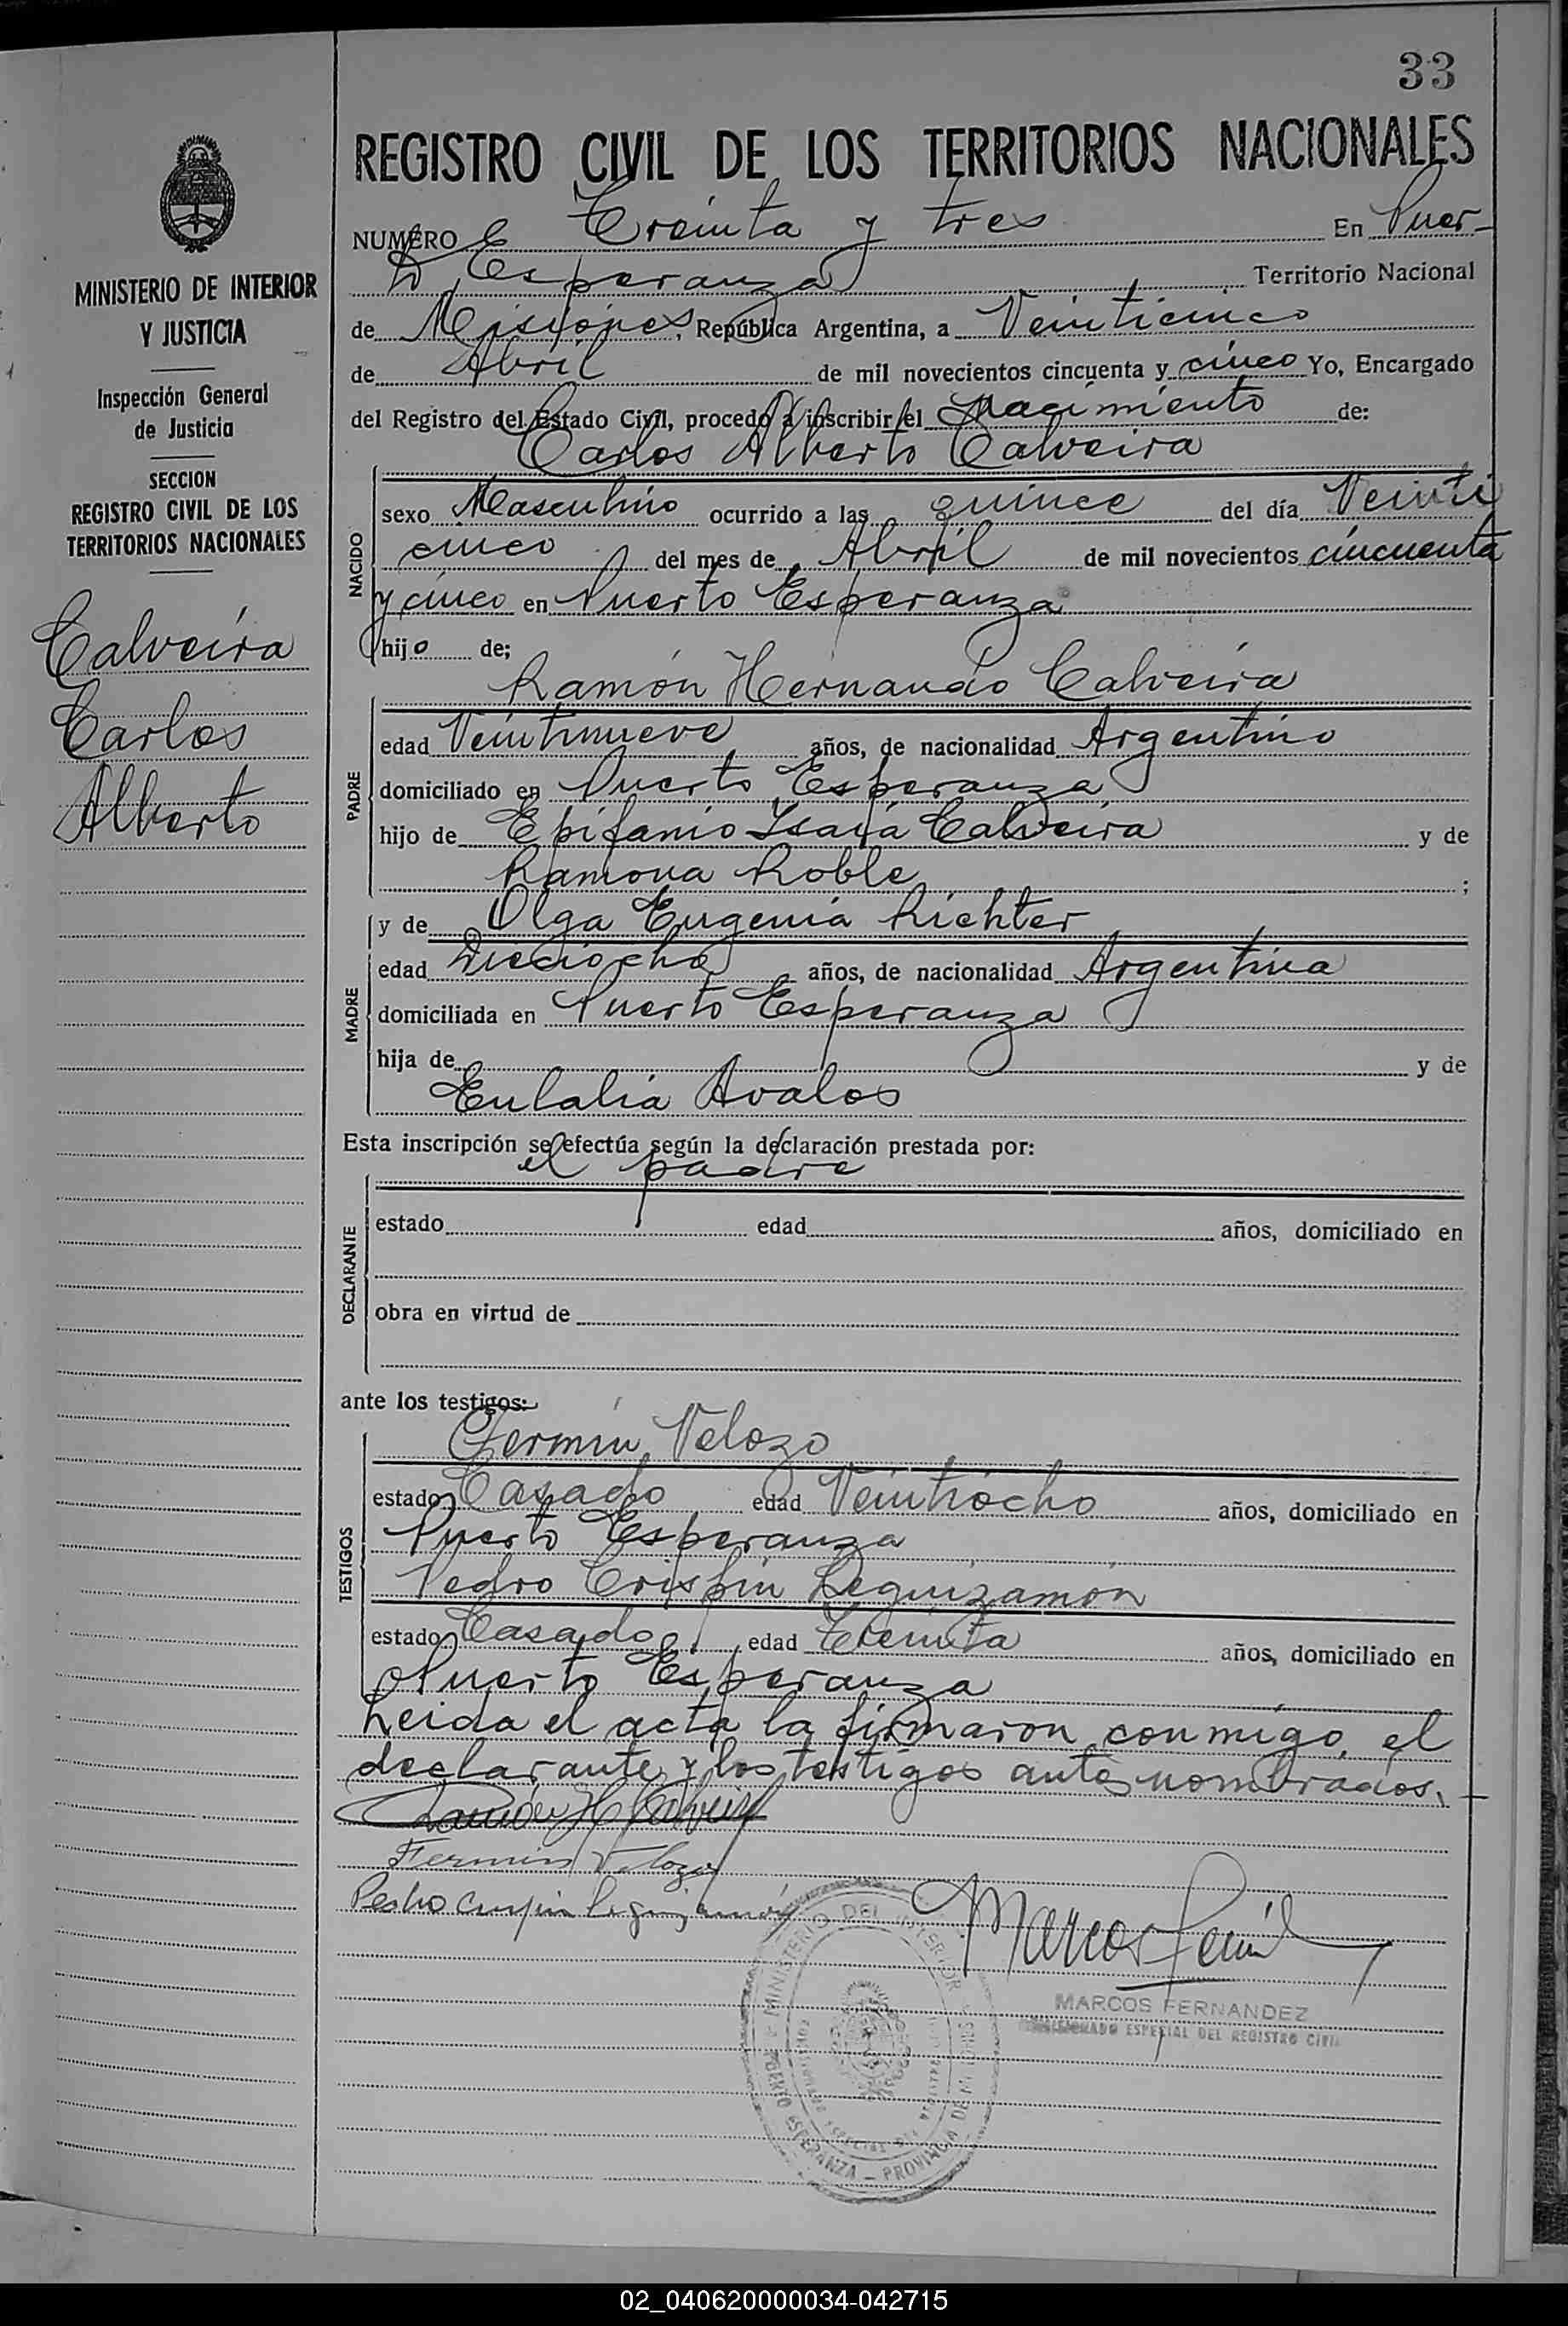 33
REGISTRO CIVIL DE LOS TERRITORIOS NACIONALES
NUMERO Treinta y tres En Puer-
to Esperanza Territorio Nacional
de Misiones, República Argentina, a Veinticinco
de Abril de mil novecientos cincuenta y cinco Yo, Encargado
del Registro del Estado Civil, procedo a inscribir el Nacimiento de:
Carlos Alberto Calveira
NACIDO
sexo Masculino ocurrido a las quince del día Veinti
cinco del mes de Abril de mil novecientos cincuenta
y cinco en Puerto Esperanza
hijo de;
Ramón Hernando Calveira
PADRE
edad Veintinueve años, de nacionalidad Argentino
domiciliado en Puerto Esperanza
hijo de Epifanio Isaya Calveira y de
Ramona Roble ;
y de Olga Eugenia Richter
MADRE
edad Dieciocho años, de nacionalidad Argentina
domiciliada en Puerto Esperanza
hija de y de
Eulalia Avalos
Esta inscripción se efectúa según la declaración prestada por:
el padre
DECLARANTE
estado edad años, domiciliado en
obra en virtud de
ante los testigos:
Fermín Velozo
TESTIGOS
estado Casado edad Veintiocho años, domiciliado en
Puerto Esperanza
Pedro Crispín Leguizamón
estado Casado edad Treinta años, domiciliado en
Puerto Esperanza
Leida el acta la firmaron conmigo, el
declarante y los testigos antes nombrados.
Ramón H Calveira
Fermin Velozo
Pedro Crispin Leguizamón
MARCOS FERNANDEZ
ESPECIAL DEL REGISTRO CIVIL
MINISTERIO DEL INTERIOR
PUERTO ESPERANZA - PROVINCIA DE MISIONES
MINISTERIO DE INTERIOR
Y JUSTICIA
Inspección General
de Justicia
SECCION
REGISTRO CIVIL DE LOS
TERRITORIOS NACIONALES
Calveira
Carlos
Alberto
02_040620000034-042715